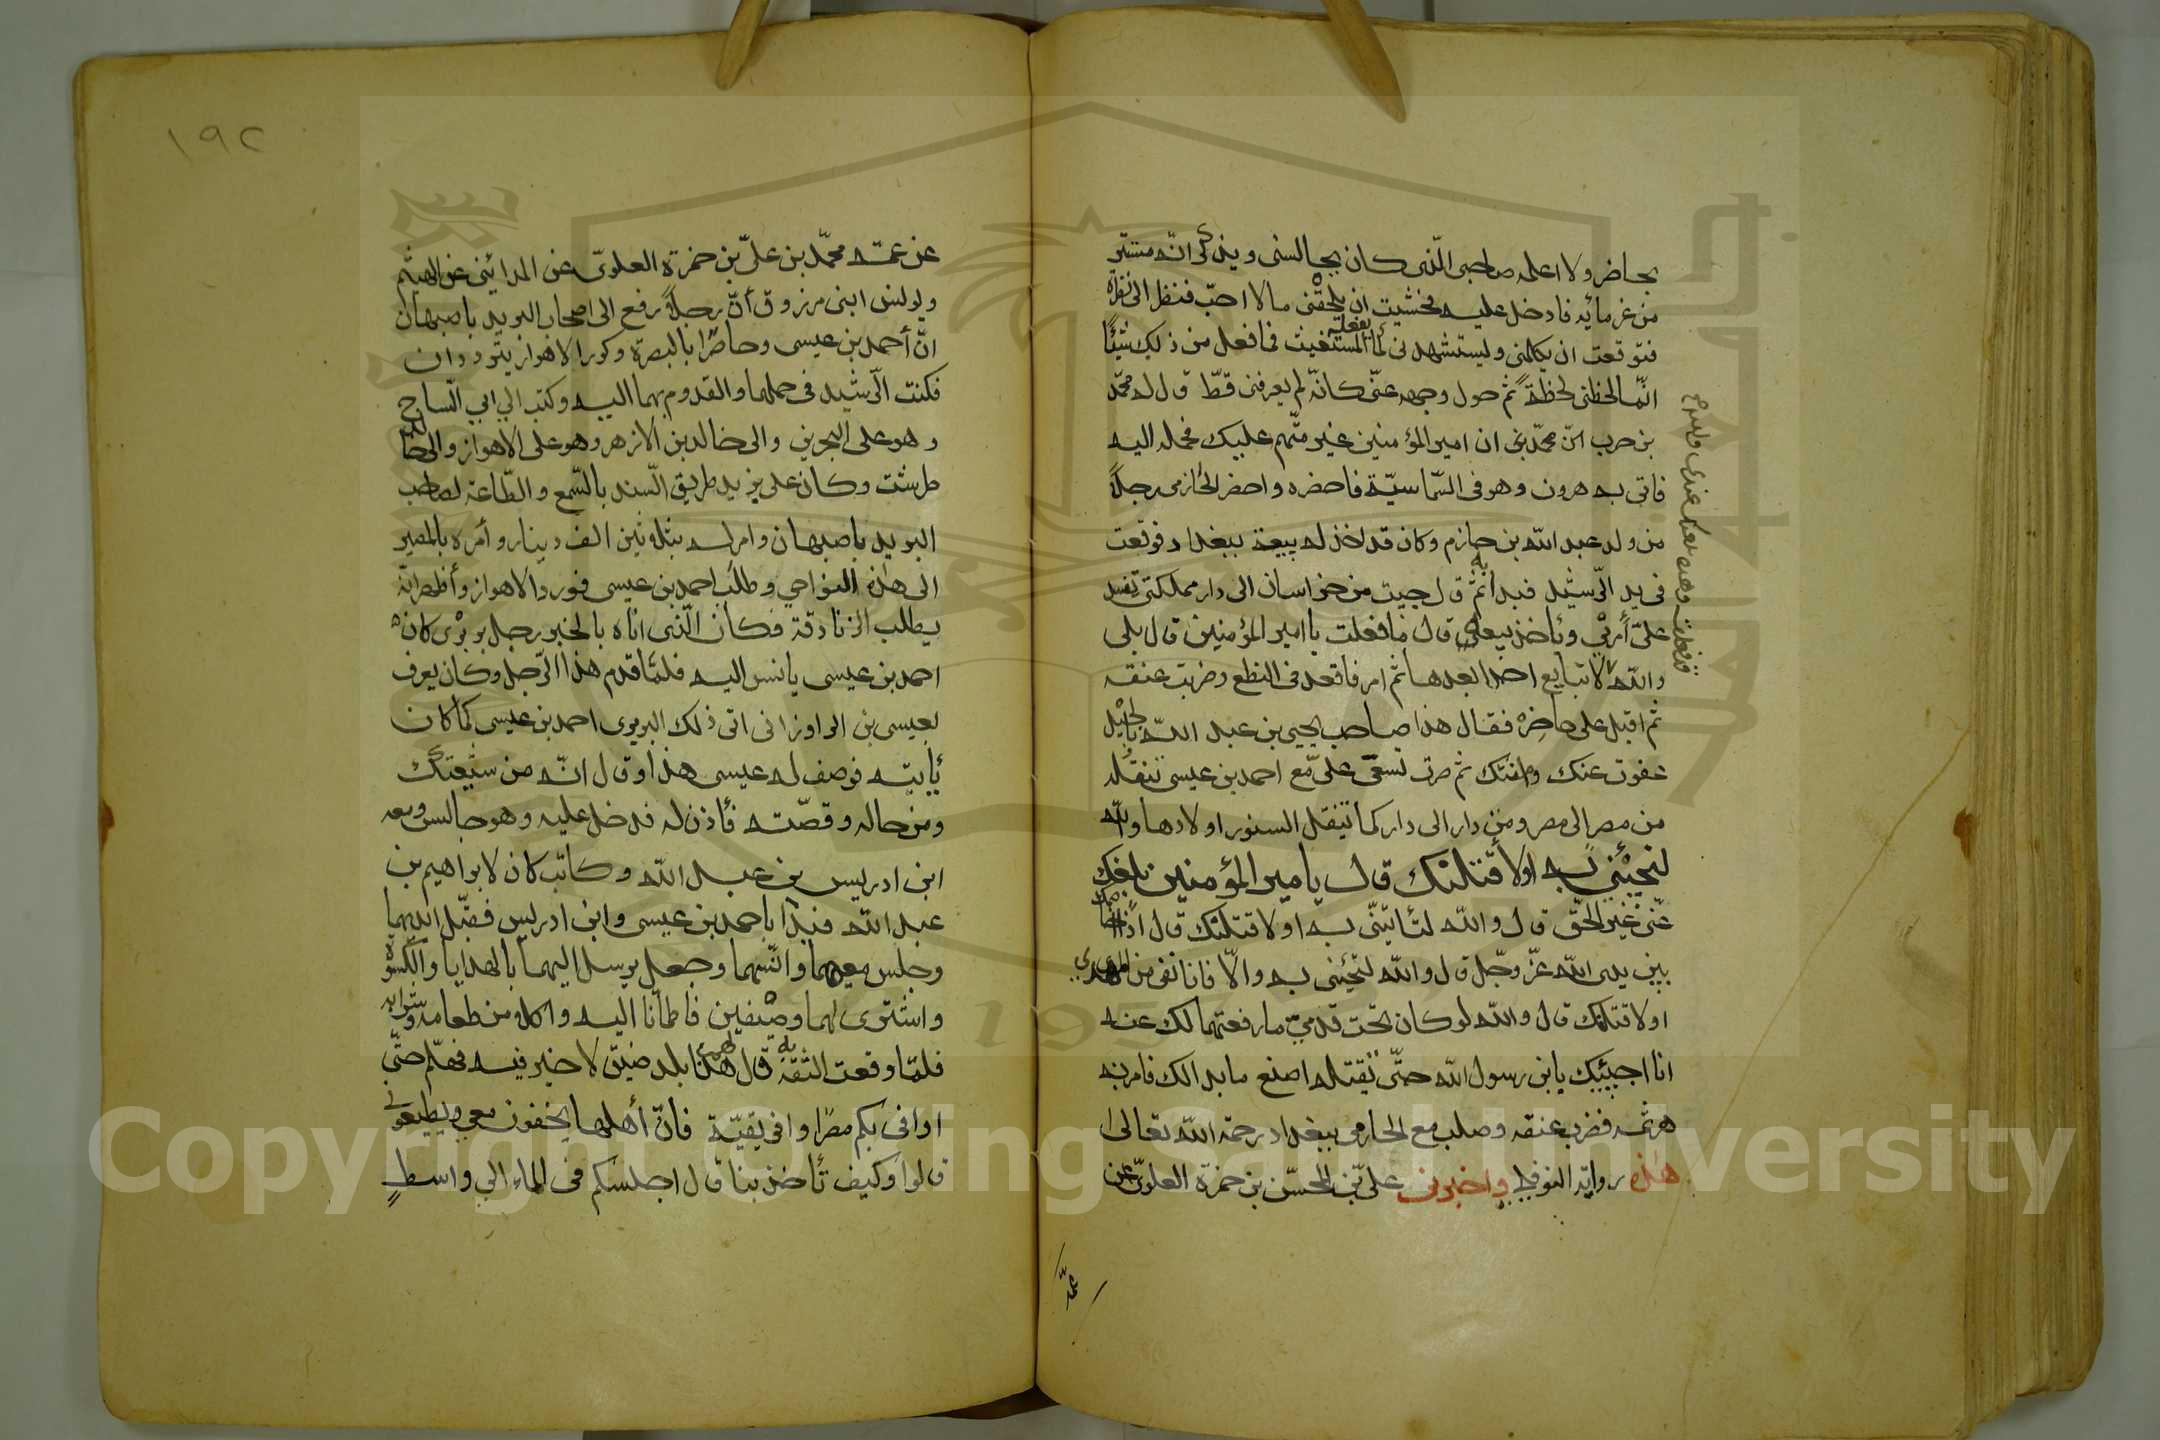 بحاضر ولا اعلمه صاحبي الّذي كان يجالسني ويذكر انّه مستتر
من غرمائه فادخل عليه فخشيت ان يلحقني ما لا احبّ فنظر الى نظرة
فتوقعت ان يكلمني ويستشهد بي لما يفعله المستغيث فما فعل من ذلك شيئًا
انّما لحظني لحظةً ثم حول وجهه عنّي كانّه لم يعرفني قطّ قال له محمّد
بن حرب انّ محمّد بن ان امير المؤمنين غير متّهم عليك فحمله اليه
فاتى به هرون وهو في الشّماسيّة فاحضره واحضر الخازمي رجلاً
من ولد عبد الله بن حازم وكان قد اخذ له بيعة ببغداد فوقعت
في يد الرّشيد فبدأ به ثمّ قال جيت من خراسان الى دار مملكتي تفسد
عليّ أمري وتاخذ بيعة قال ما فعلت يا امير المؤمنين قال بلى
والله لا تبايع احدا بعدها ثم امر فاقعد في النطع وضربت عنقه
ثم اقبل على حاضر فقال هذا صاحب يحيى بن عبد الله بالجبل
عفوت عنك وامنتك ثم صرت تسعى عليّ مع احمد بن عيسى تنقله
من مصر الى مصر ومن دار الى دار كما تنقل السنور اولادها والله
لتجيئنّي به او لأقتلنّك قال يا امير المؤمنين بلغك
عنّي غير الحقّ قال والله لتأتينّي به او لاقتلنّك قال اذًا اخاصمك
بين يدي الله عزّ وجلّ قال والله لتجيئني به والّا فانا نفي من المهدي
او لاقتلنّك قال والله لو كان تحت قدميّ ما رفعتهما لك عنه
انا اجيئك بابن رسول الله حتّى تقتله اصنع ما بدا لك فامر به
هرثمه فضرب عنقه وصلب مع الخازمي ببغداد رحمة الله تعالى
هذه رواية النوفلي واخبرني علي بن الحسن بن حمزة العلويّ عن
عن عمّه محمّد بن عليّ بن حمزة العلويّ عن المدائني عن الهيثم
ويونس ابني مرزوق أنّ رجلاً رفع الى اصحاب البريد باصبهان
انّ أحمد بن عيسى وحاضرًا بالبصرة وكور الاهواز يتردّدان
فكتب الرّشيد في حملهما والقدوم بهما اليه وكتب الي ابي السّاج
وهو على البحرين والى خالد بن الازهر وهو على الاهواز والى خالد
طرشت وكان على بريد طريق السند بالسّمع والطّاعة لصاحب
البريد باصبهان وامر له بثلاثين الف دينار وأمره بالمصير
الى هذه النواحي وطلب احمد بن عيسى فورد الاهواز وأظهر انّه
يطلب الزنادقة فكان الّذي اتاه بالخبر رجل بربري كان
احمد بن عيسى يانس اليه فلمّا قدم هذا الرّجل وكان يعرف
بعيسى بن الراوزاني اتى ذلك البربري احمد بن عيسى كما كان
يأتيه فوصف له عيسى هذا وقال انّه من شيعتك
ومن حاله وقصّته فأذن له فدخل عليه وهو جالس ومعه
ابن ادريس بن عبد الله وكاتب كان لابراهيم بن
عبد الله فبدأ باحمد بن عيسى وابن ادريس فقبّل ايديهما
وجلس معهما وانسهما وجعل يرسل اليهما بالهدايا والكسوة
واشترى لهما وصيفين فاطمأنّا اليه واكلا من طعامه وشرابه
فلمّا وقعت الثقة به قال لهم هذا بلد ضيق لا خير فيه فهلمّ حتّى
اوافي بكم مصرًا وافريقيّة فانّ أهلها يخفون معي ويطيعوني
قالوا وكيف تأخذ بنا قال اجلسكم في الماء الي واسط
١٩٢
Copyright © King Saud University
1957